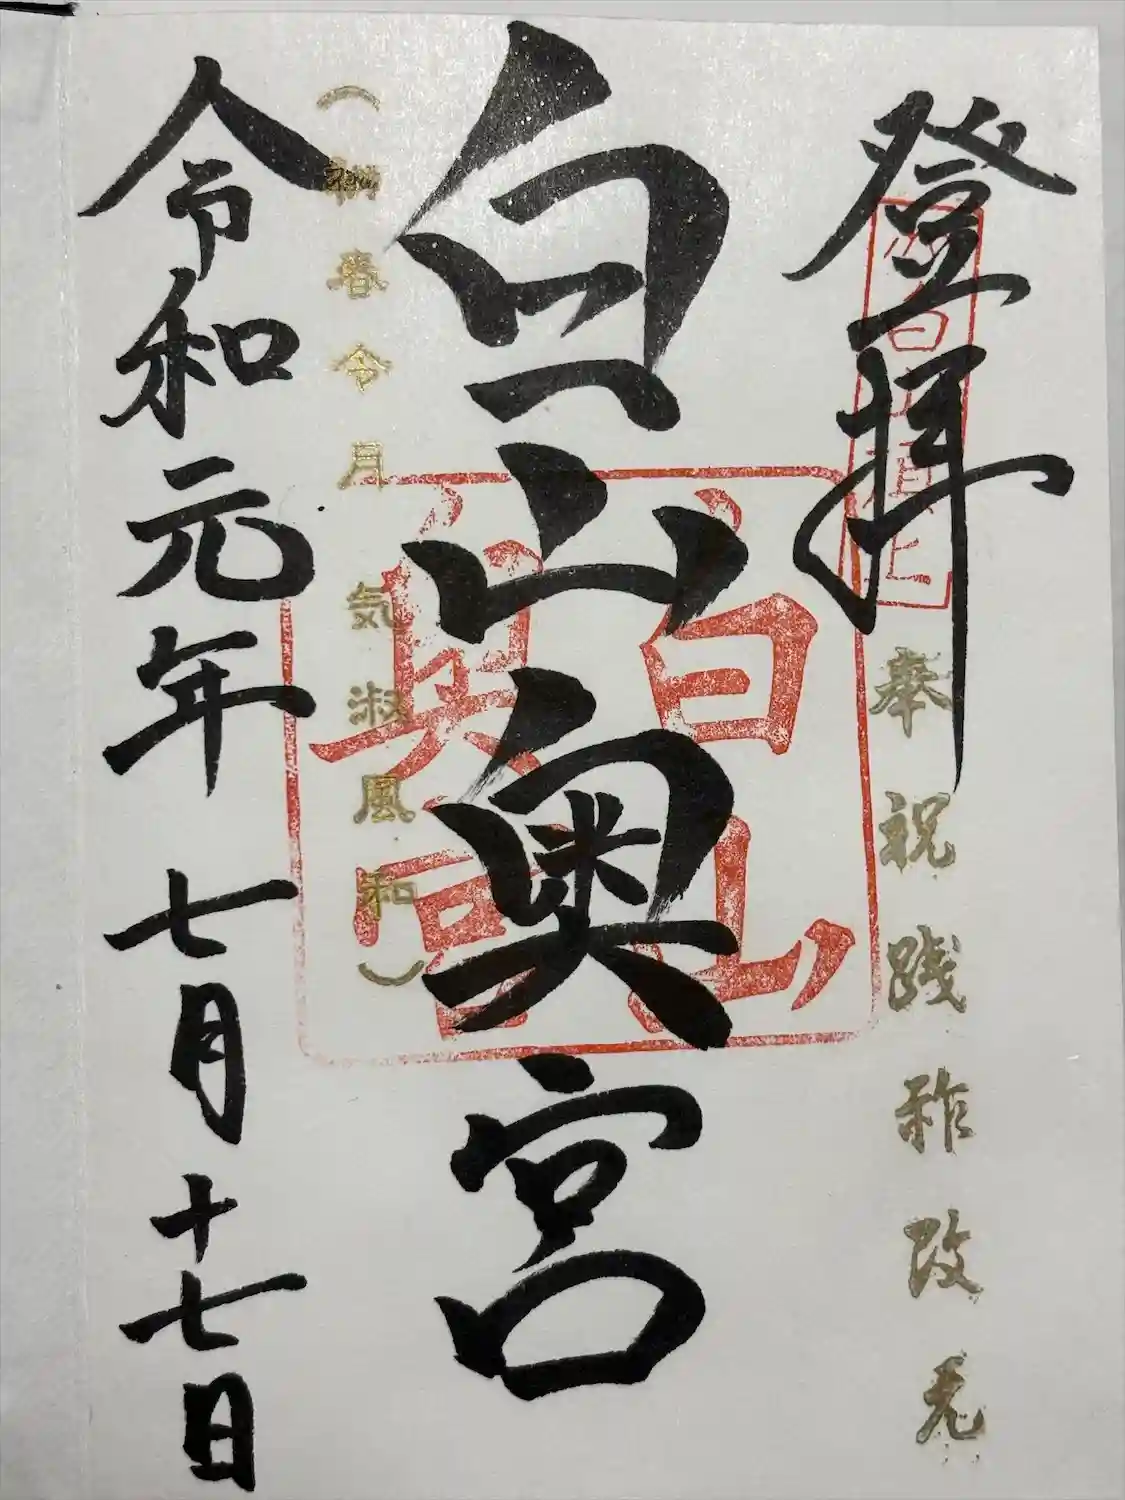 登拝
奉祝践祚改元
白山奥宮
白山奥宮
(初春令月 気淑風和)
令和元年七月十七日